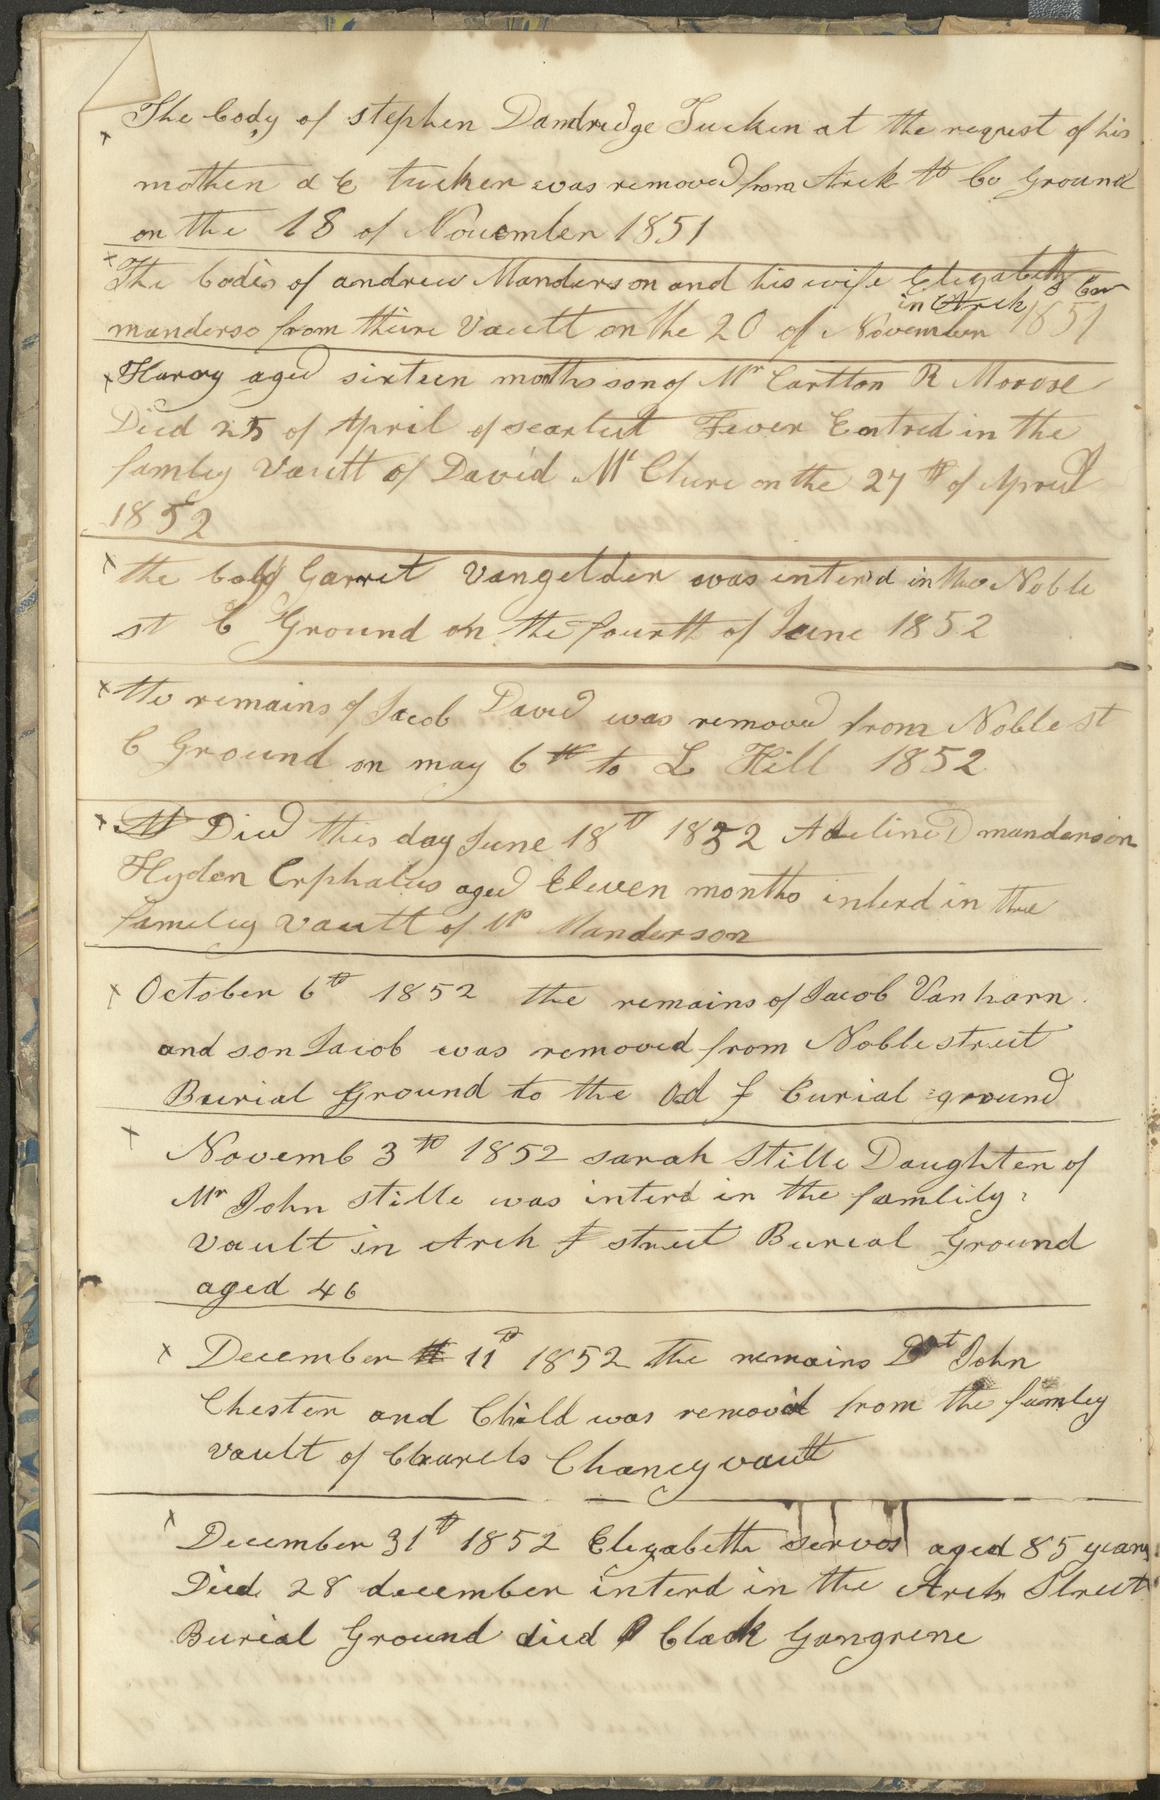 The body of stephen Dandridge Tucken at the request of his
mothen d E tucken was removed from Arck St bu Ground
on the 18 of November 1851
The bodis of andrew Manderson and his wife Elizabeth
in Arch
manderso from thire Vault on the 20 of November 1851
Harry aged sixteen moths son of Mr Carlton R Moore
Died 25 of April of scarlett Fever Entred in the
famley Vault of David Mc Clure on the 27 th of April
1852
the body Garret Vangelden was interd in the Noble
st B Ground on the fourth of June 1852
the remains of Jacob David was removed from Noble st
B Ground on may 6 th to L Hill 1852
Died this day June 18 th 1852 Adeline D manderson
Hyden Cephalus aged Eleven months interd in the
familey vault of Mr Manderson
October 6 th 1852 the remains of Jacob Vanharn
and son Jacob was removed from Noble street
Burial Ground to the Od f burial ground
Novemb 3 th 1852 sarah Stille Daughten of
Mr John Stille was interd in the familily
vault in Arch street Bureal Ground
aged 46
December 11 th 1852 the remains John
Chesten and Child was remove'd from the famley
vault of Charels Chancy vault
December 31 th 1852 Elizabeth servos aged 85 years
Died 28 december interd in the Arch Street
Burial Ground died black Gangrene